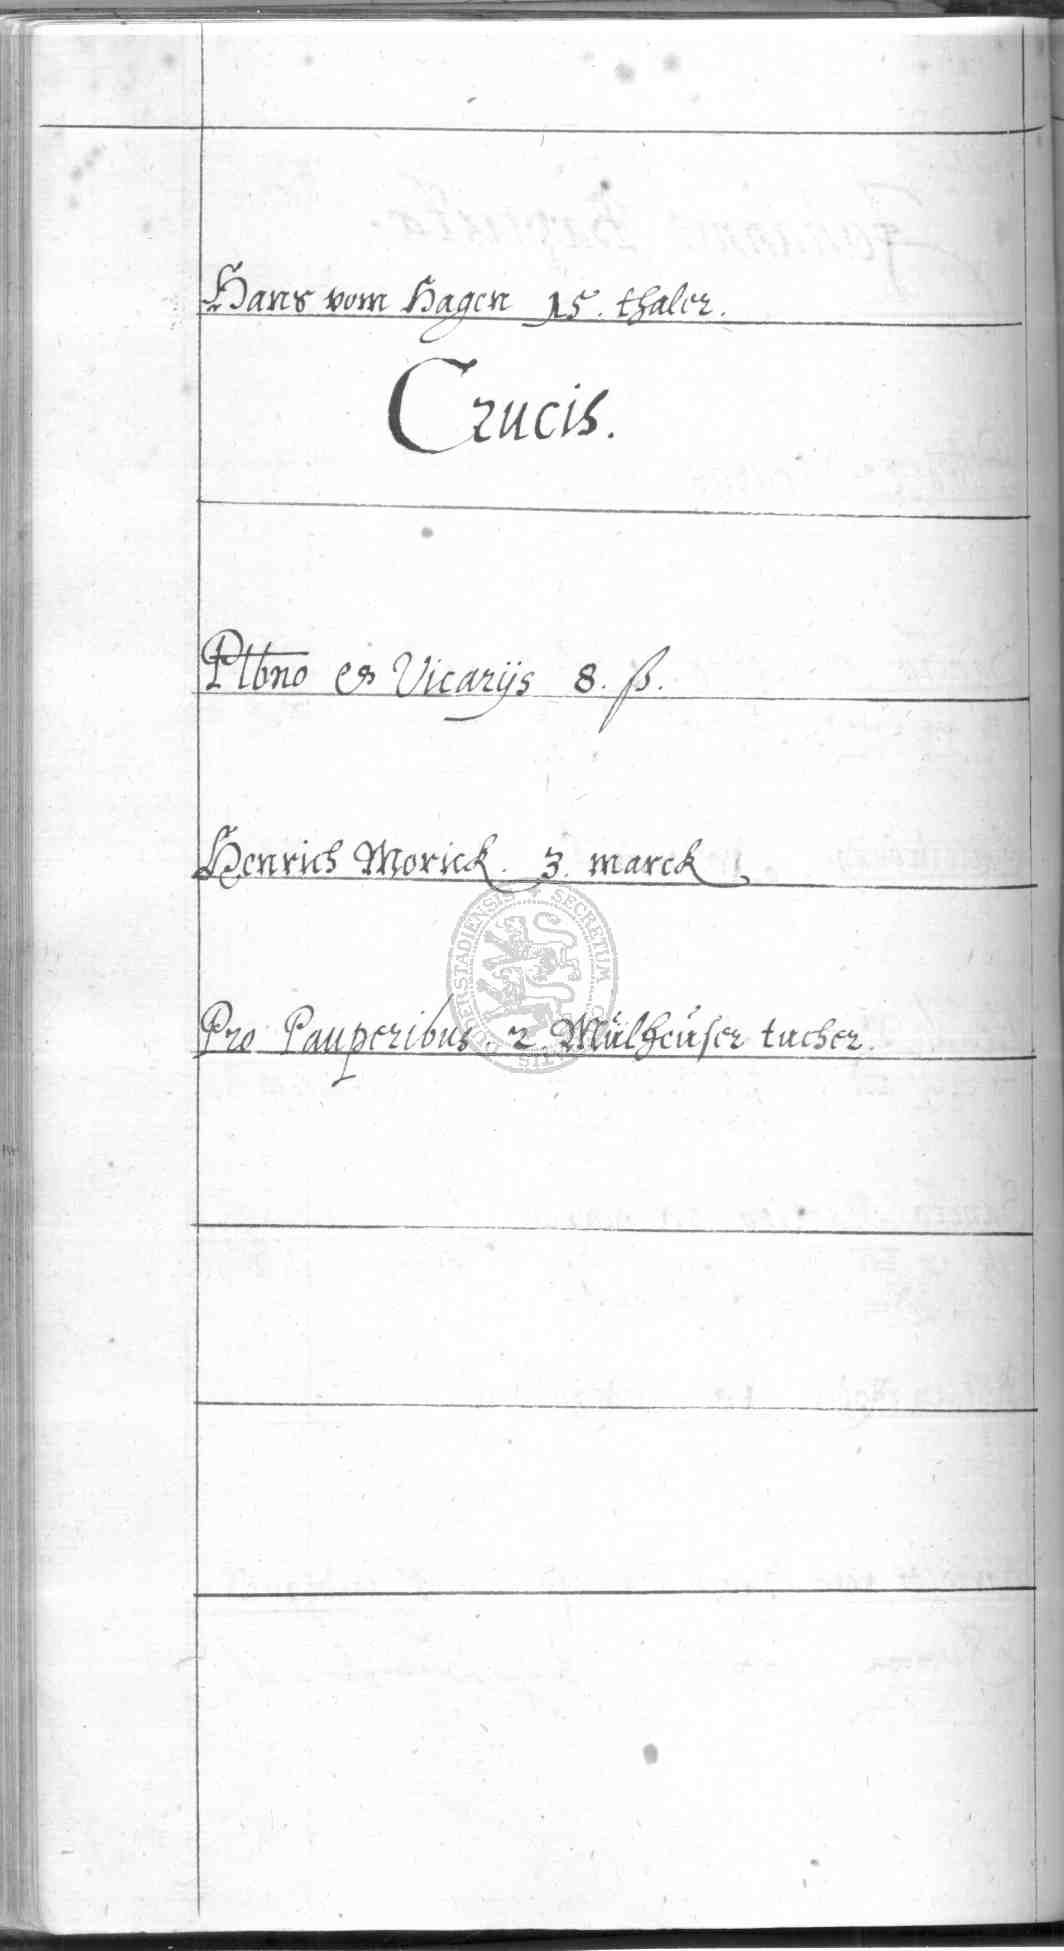 Hans vom Hagen 15. thaler.
Crucis.
Plbno et Vicarijs 8. ß.
Henrich Morick. 3. marck
Pro Pauperibus. 2. Mülheuser tucher.
SECRETUM